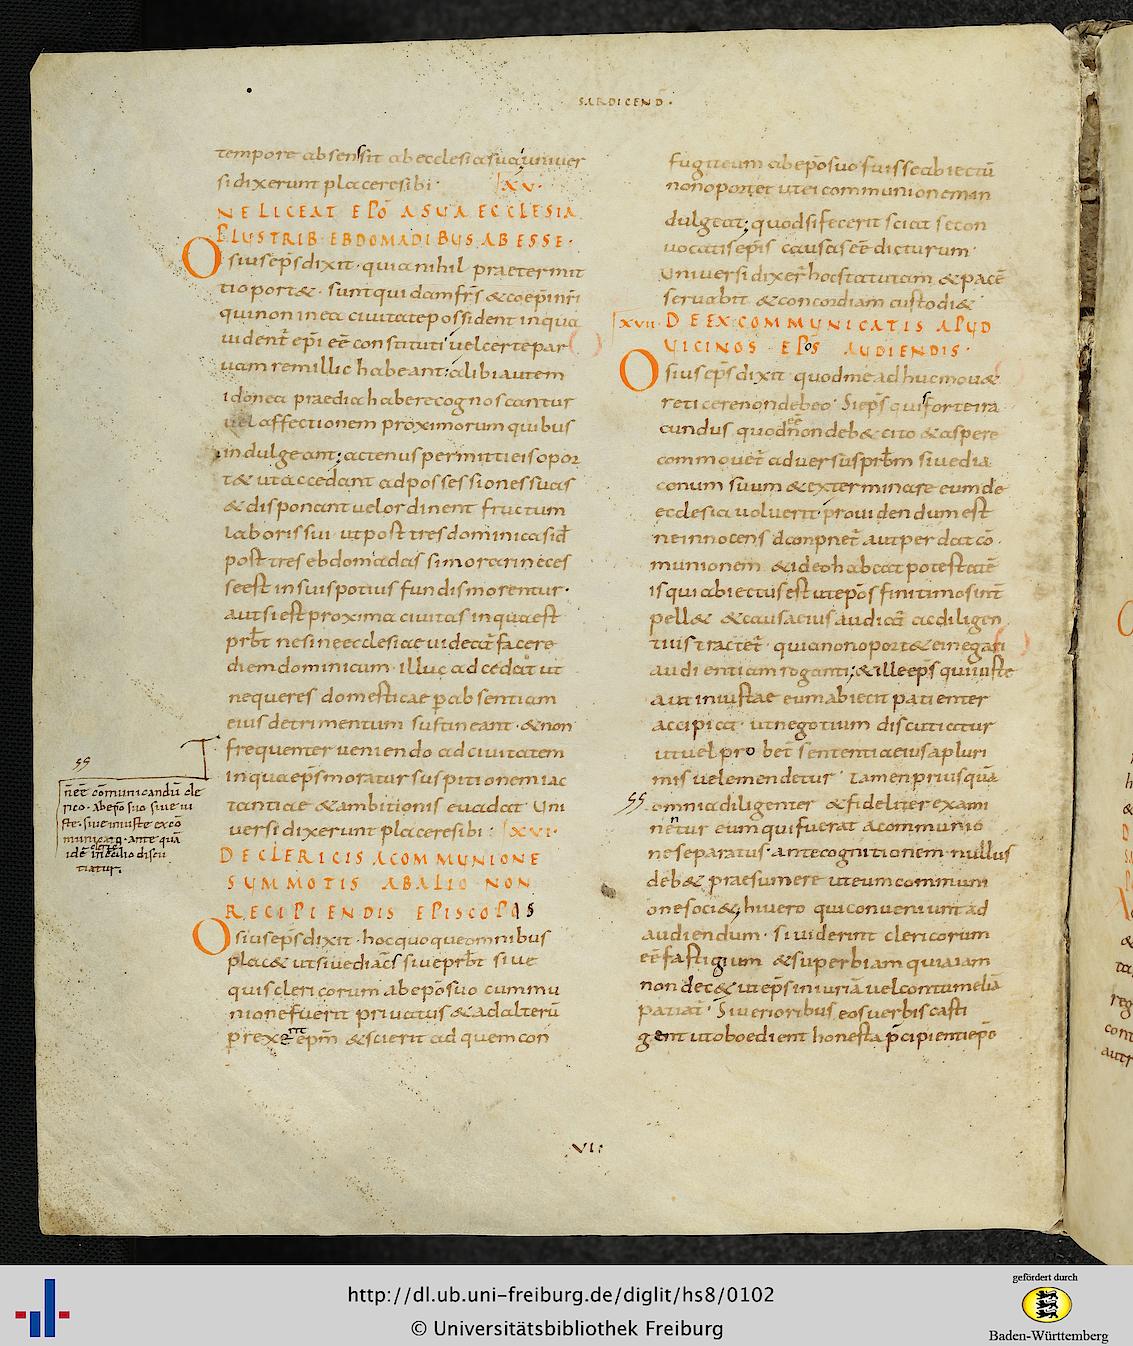 SARDICEND̄·
tempore absensit ab ecclesia sua; univer
si dixerunt placere sibi· XV·
NE LICEAT EPŌ A SUA ECCLESIA
PLUSTRIB· EBDOMADIBUS ABESSE·
Osius ep̄s dixit· quia nihil praetermit
ti oport&· sunt qui dam fr̄s & coep̄i nr̄i
qui non in ea civitate possident in qua
vident̄ ep̄i eē constituti vel certe par
vam rem illic habeant; alibi autem
idonea praedia habere cognoscantur
vel affectionem proximorum quibus
indulgeant; actenus permitti eis opor
t& ut accedant ad possessiones suas
& disponant vel ordinent fructum
laboris sui ut post tres dominicas id̄
post tres ebdomadas si morari neces
se est in suis potius fundis morentur·
aut si est proxima civitas in qua est
prb̄t ne sine ecclesia videat̄ facere
diem dominicum· illuc adcedat ut
neque res domesticae p absentiam
eius detrimentum sustineant· & non
frequenter veniendo ad civitatem
in qua ep̄s moratur suspitionem iac
tantiae & ambitionis evadat Uni
versi dixerunt placere sibi: XVI·
DE CLERICIS A COMMUNIONE
SUMMOTIS AB ALIO NON
RECIPIENDIS EPISCOPIS
Osius ep̄s dixit· hoc quoque omnibus
plac& ut sive diac̄s sive prb̄t sive
quis clericorum ab ep̄o suo commu
nione fuerit privatus & ad alterū
ep̄m & scierit ad quem con
ss
nēt cōmunicandū cle
rico· ab ep̄o suo sive iu
ste· sive iniuste excō
ante quā
discu
tiatur·
fugit eum ab ep̄o suo fuisse abiectū
non oportet ut ei communionem in
dulgeat; quod si fecerit sciat se con
vocatis ep̄is causas eē dicturum·
Universi dixer̄ hoc statutum & pacē
servabit & concordiam custodi&
XVII· DE EXCOMMUNICATIS APUD
VICINOS EPOS AUDIENDIS·
Osius ep̄s dixit quod me adhuc mov&
reticere non debeo· Si ep̄s quis forte ira
cundus quod n̄on deb& cito & aspere
commovet̄ adversus prb̄m sive dia
conum suum & exterminare eum de
ecclesia voluerit providendum est
ne innocens dampnet̄ aut perdat cō
munionem & ideo habeat potestatē
is qui abiectus est ut ep̄os finitimos int̄
pell& & causa eius audiat̄ ac diligen
tius tractet̄· quia non oport& ei negari
audientiam roganti; & ille ep̄s qui iuste
aut iniustae eum abiecit patienter
accipiat· ut negotium discutiatur
ut vel probet̄ sententia eius a pluri
mis vel emendetur tamen prius quā
ss omnia diligenter & fideliter exami
nentur eum qui fuerat a communio
ne separatus· ante cognitionem nullus
deb& praesumere ut eum communi
one soci&; hi vero qui conveniunt ad
audiendum· si viderint clericorum
eē fastigium & superbiam quia iam
non dec& ut ep̄s iniuriā vel contumeliā
patiat̄· Siverioribus eos verbis casti
gent ut oboedient honesta p̄cipienti ep̄o
VI:
http://dl.ub.uni-freiburg.de/diglit/hs8/0102
© Universitätsbibliothek Freiburg
gefördert durch
Baden-Württemberg